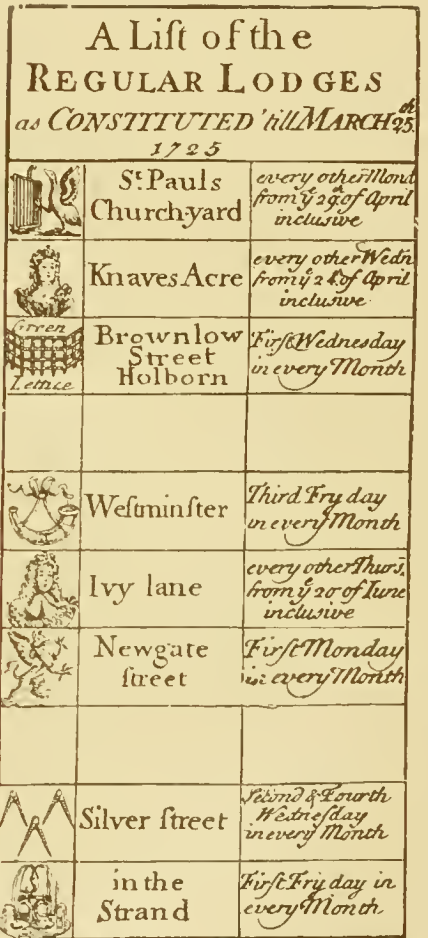 A Liſt of the
REGULAR LODGES
as CONSTITUTED 'till MARCH 25th
1725
St. Pauls
Church-yard
every other Mond
from ye 29th of April
inclusive
Knaves Acre
every other Wedn
from ye 24th of April
inclusive
Green
Lettice
Brownlow
Street
Holborn
Firſt Wednesday
in every Month
Weſtminſter
Third Fryday
in every Month
Ivy lane
every other Thurs.
from ye 20 of Iune
inclusive
Newgate
ſtreet
Firſt Monday
in every Month
Silver ſtreet
Second & Fourth
Wedneſday
in every Month
in the
Strand
Firſt Fryday in
every Month